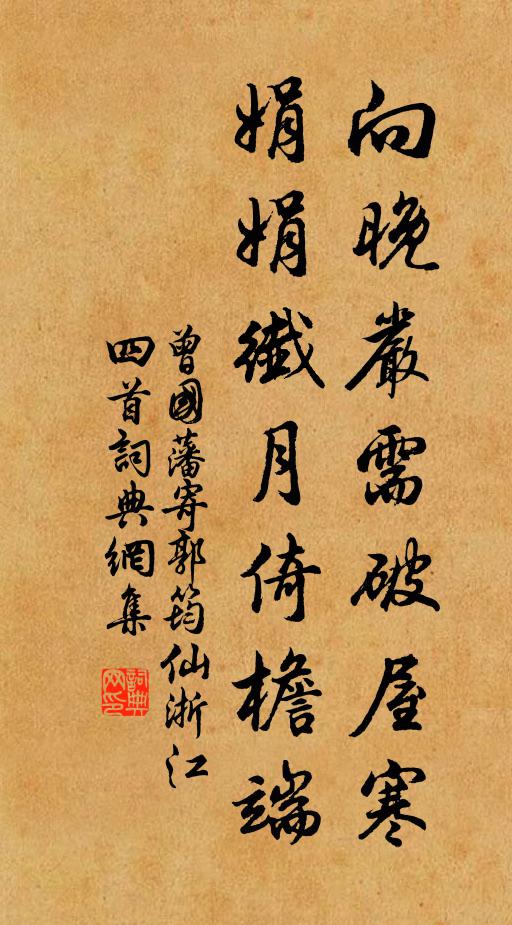 向晚嚴需破屋寒
娟娟纖月倚檐端
曾國藩寄郭筠仙浙江
四首詞典網集
詞典網印